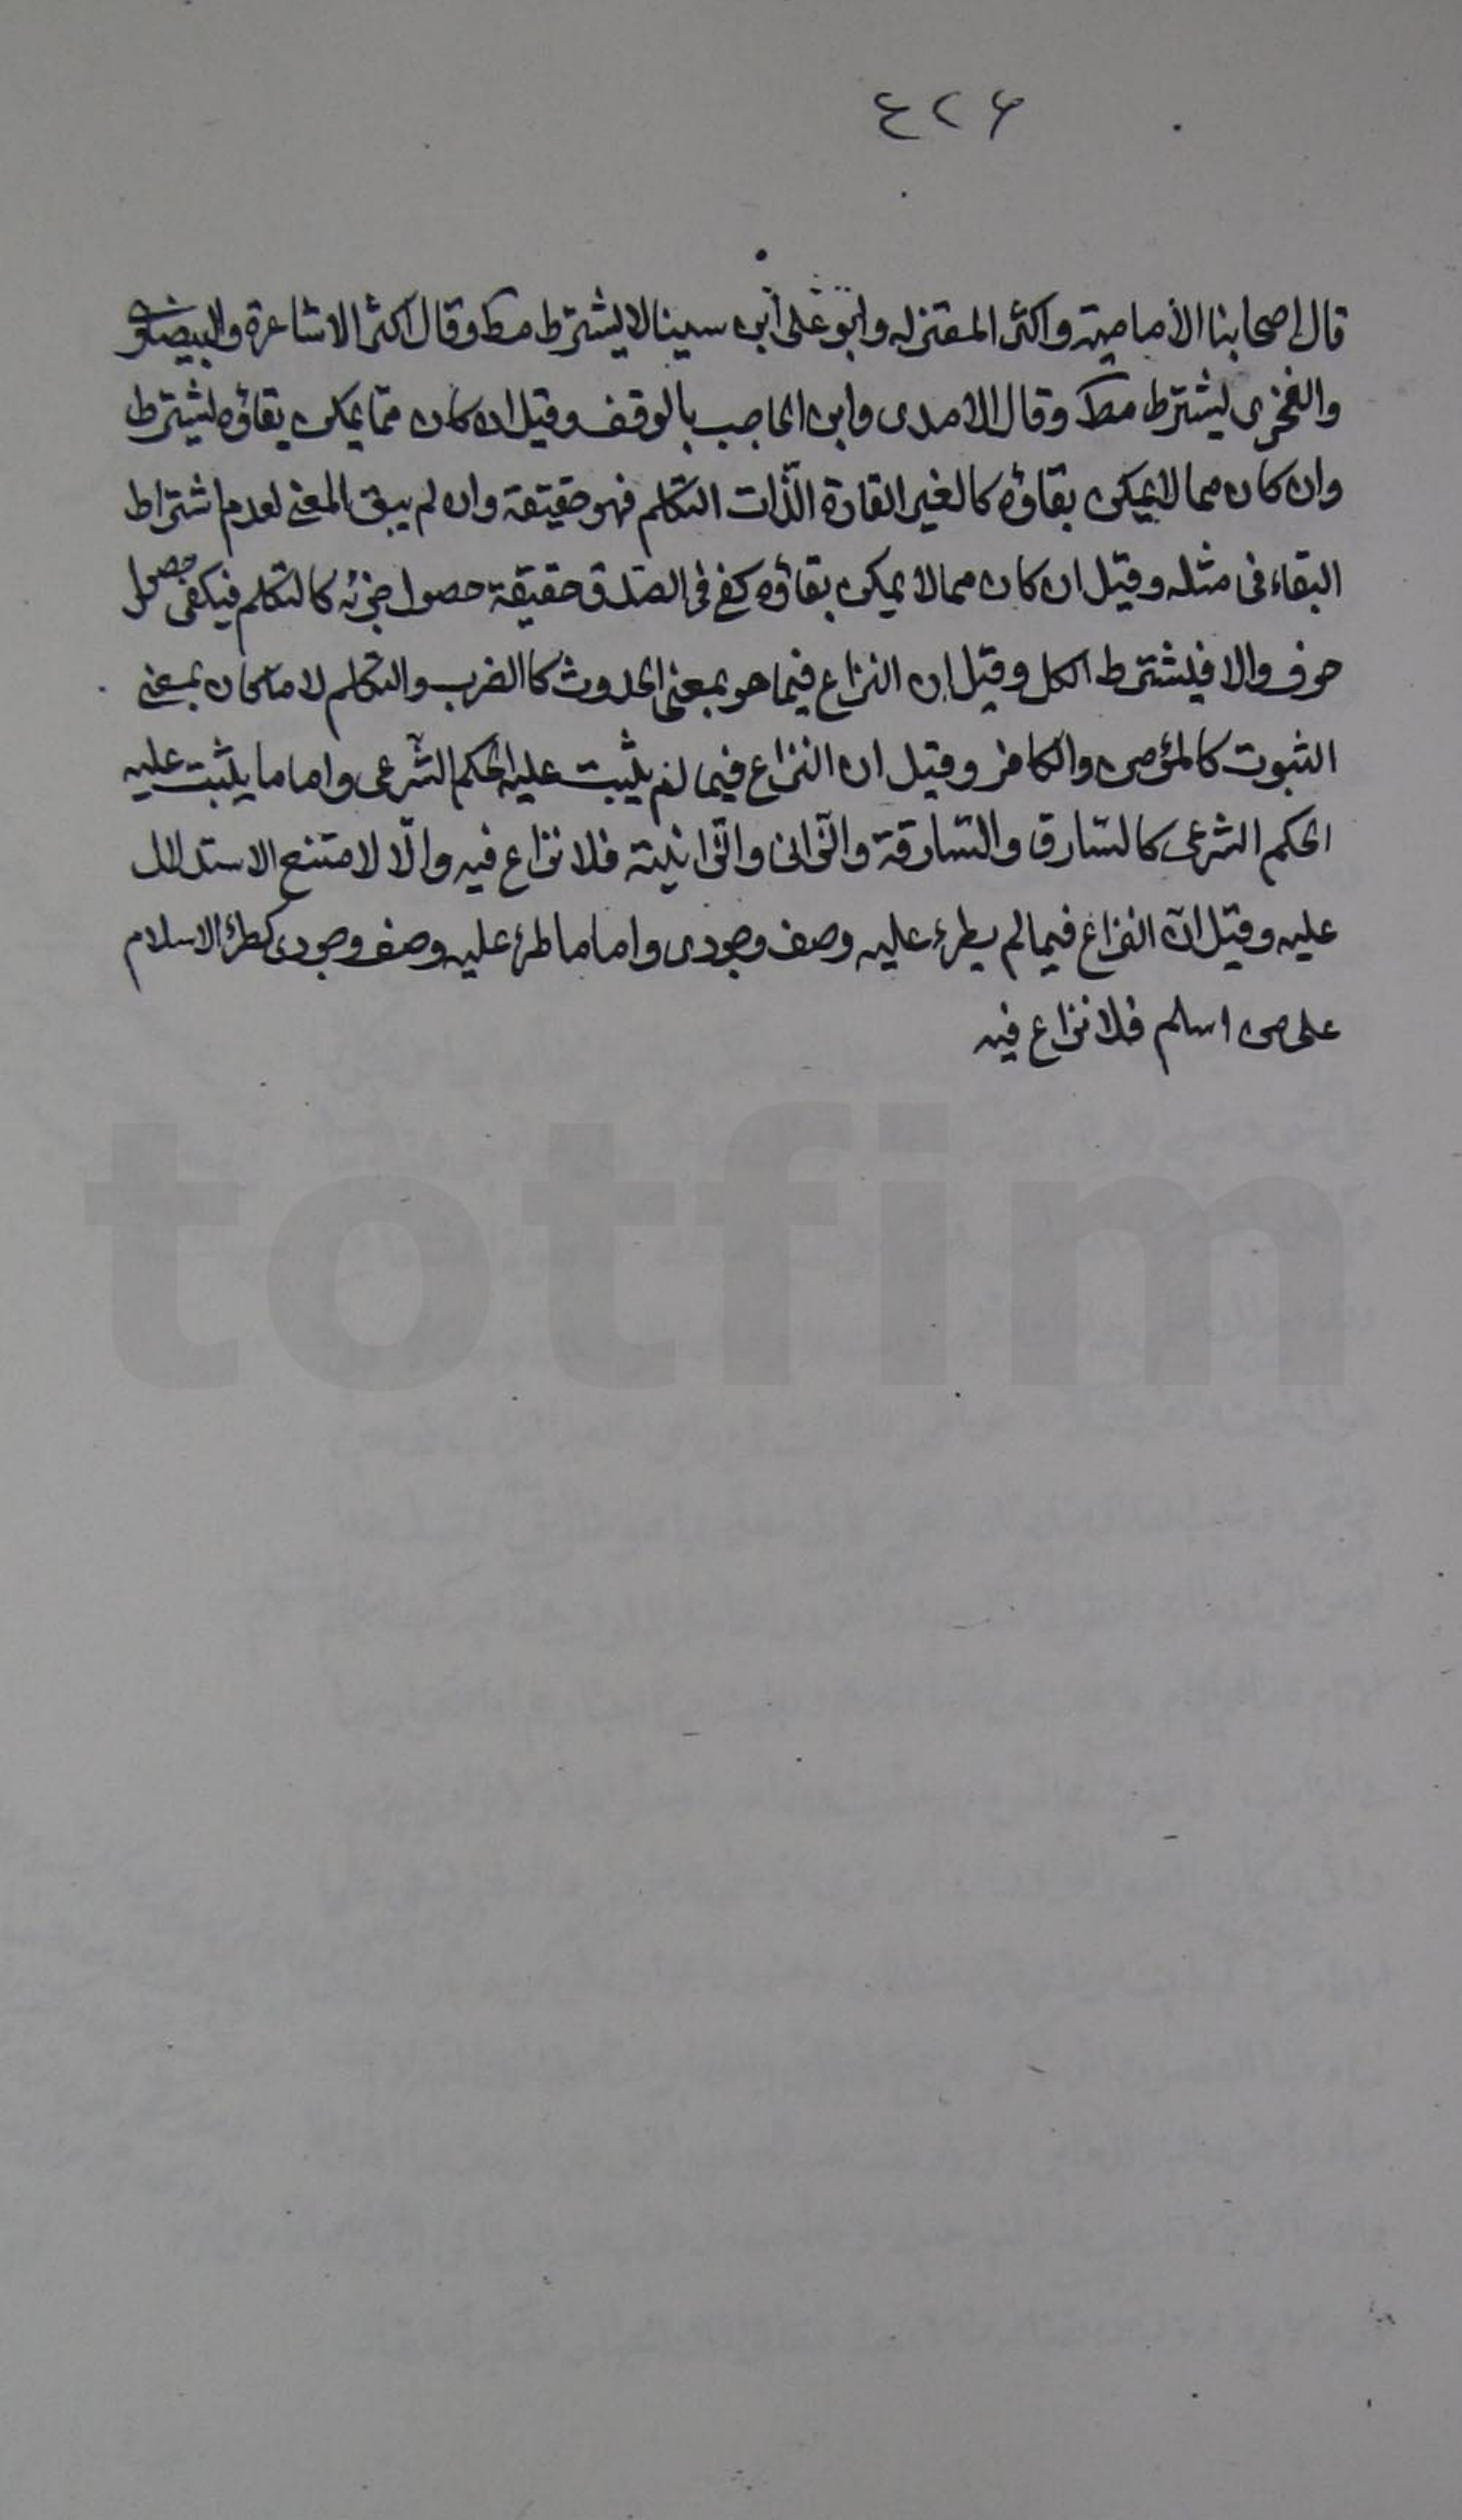 ٤٢۶
قال اصحابنا الأمامية واكثر المعتزله وابو على ابن سينا لا يشترط مط وقال اكثر الاشاعرة والبيضاوى
والفخرى يشترط مط وقال الامدى وابن الحاجب بالوقف وقيل ان كان ممّا يمكن بقاؤه يشترط
وان كان مما لا يمكن بقاؤه كالغير القارة الذّات التكلم فهو حقيقة وان لم يبق المعنى لعدم اشتراط
البقاء فى مثله وقيل ان كان مما لا يمكن بقاؤه كفى فى الصّدق حقيقة حصول جزئه كالتكلم فيكفى حصول
حرف والا فيشترط الكل وقيل ان النزاع فيما هو بمعنى الحدوث كالضرب والتكلم لا ما كان بمعنى
الثبوت كالمؤمن والكافر وقيل ان النزاع فيما لم يثبت عليه الحكم الشّرعى واما ما يثبت عليه
الحكم الشرعى كالسّارق والسّارقة والزّانى والزّانية فلا نزاع فيه والّا لامتنع الاستدلال
عليه وقيل انّ النزاع فيما لم يطرء عليه وصف وجودى واما ما طرء عليه وصف وجودى كطرؤ الاسلام
على من اسلم فلا نزاع فيه
totfim